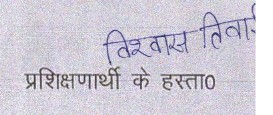 विश्वास तिवा
प्रशिक्षणार्थी के हस्ता0